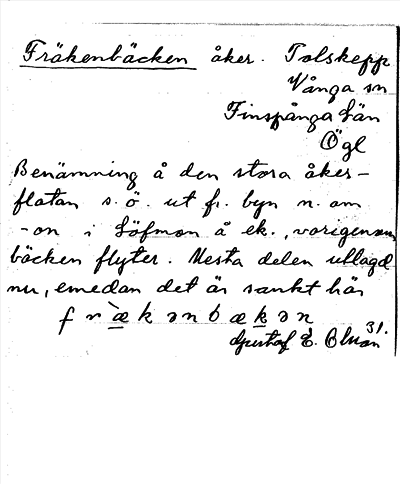 Fräkenbäcken åker. Tolskepp
Vånga sn
Finspånga Län
Ögl
Benämning å den stora åker-
flatan s. ö. ut fr. byn n. om
-on i Löfmon å ek., varigenom
bäcken flyter. Mesta delen utlagd
nu, emedan det är sankt här
fræ̀kənbækən
Gustaf E. 31.